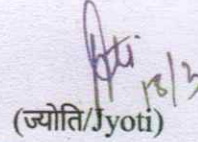 18/3
(ज्योति/Jyoti)